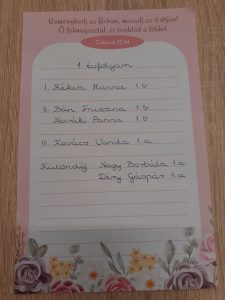 Reménykedj az Úrban, maradj az ő útján!
Ő felmagasztal, és öröklöd a földet.
Zsoltárok 37:34
1. évfolyam
I. Kékesi Hanna 1.b
II. Bán Fruzsina 1.b
Novák Panna 1.b
III. Kovács Vanda 1.a
Különdíj: Nagy Borbála 1.a
Dény Gáspár 1.a